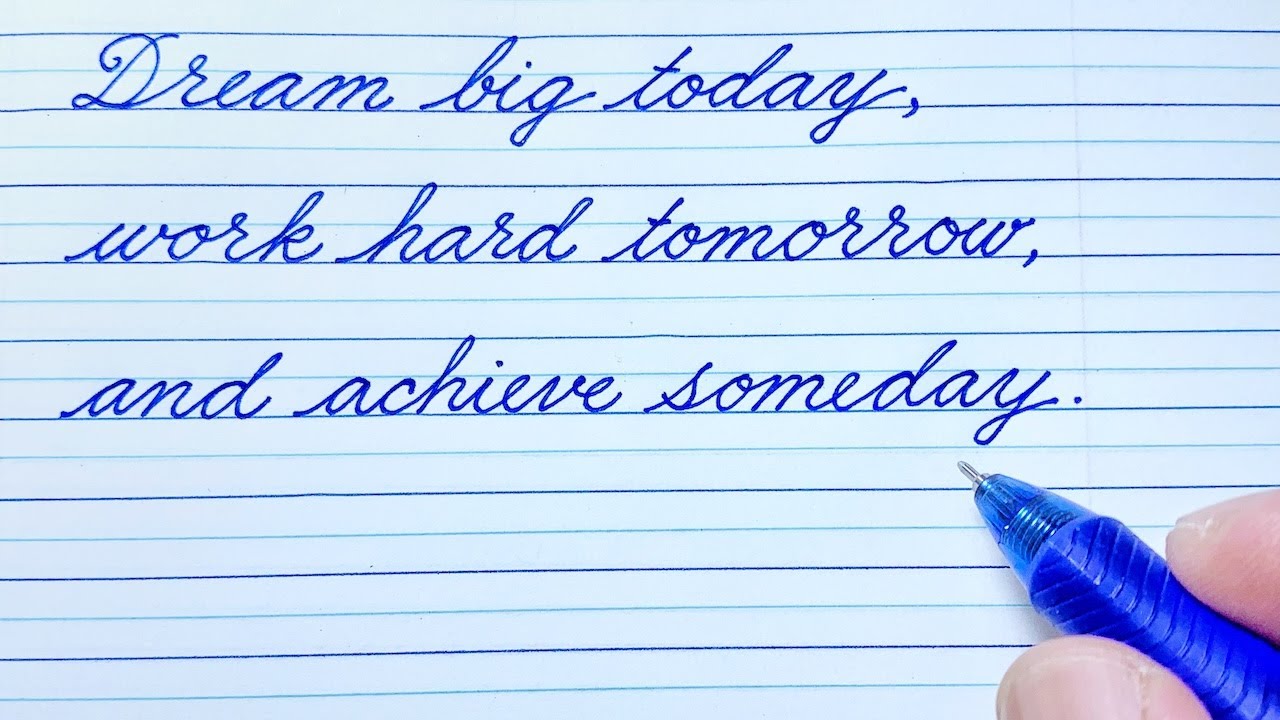 Dream big today,
work hard tomorrow,
and achieve someday.